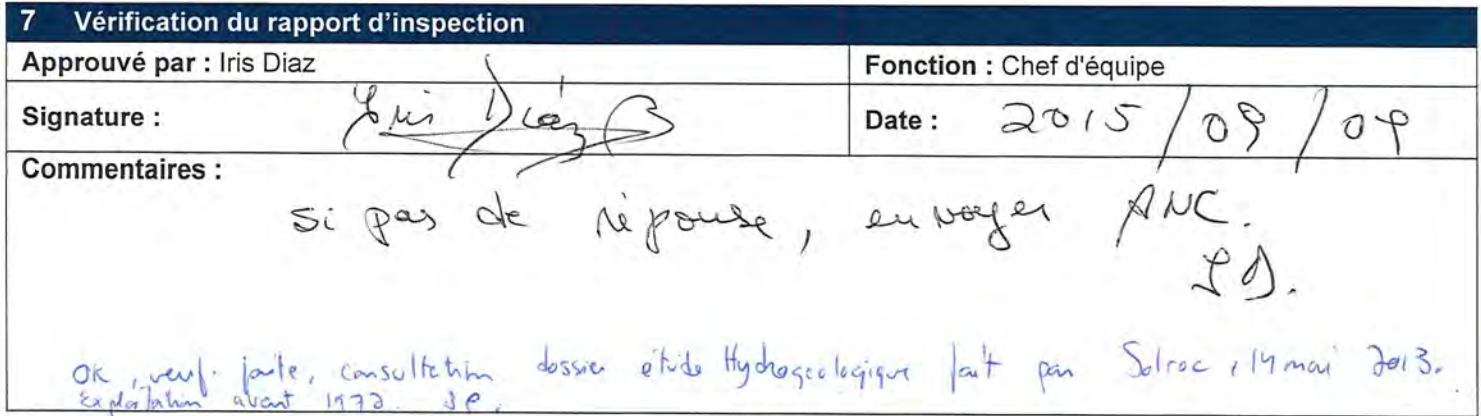 7 Vérification du rapport d'inspection
Approuvé par : Iris Diaz
Fonction : Chef d'équipe
Signature : Iris Diáz B
Date : 2015/09/09
Commentaires :
si pas de réponse, envoyer ANC.
I D.
OK, verif. faite, consultation dossier étude Hydrogeologique fait par Solroc, 14 mai 2013.
exploitation avant 1972.